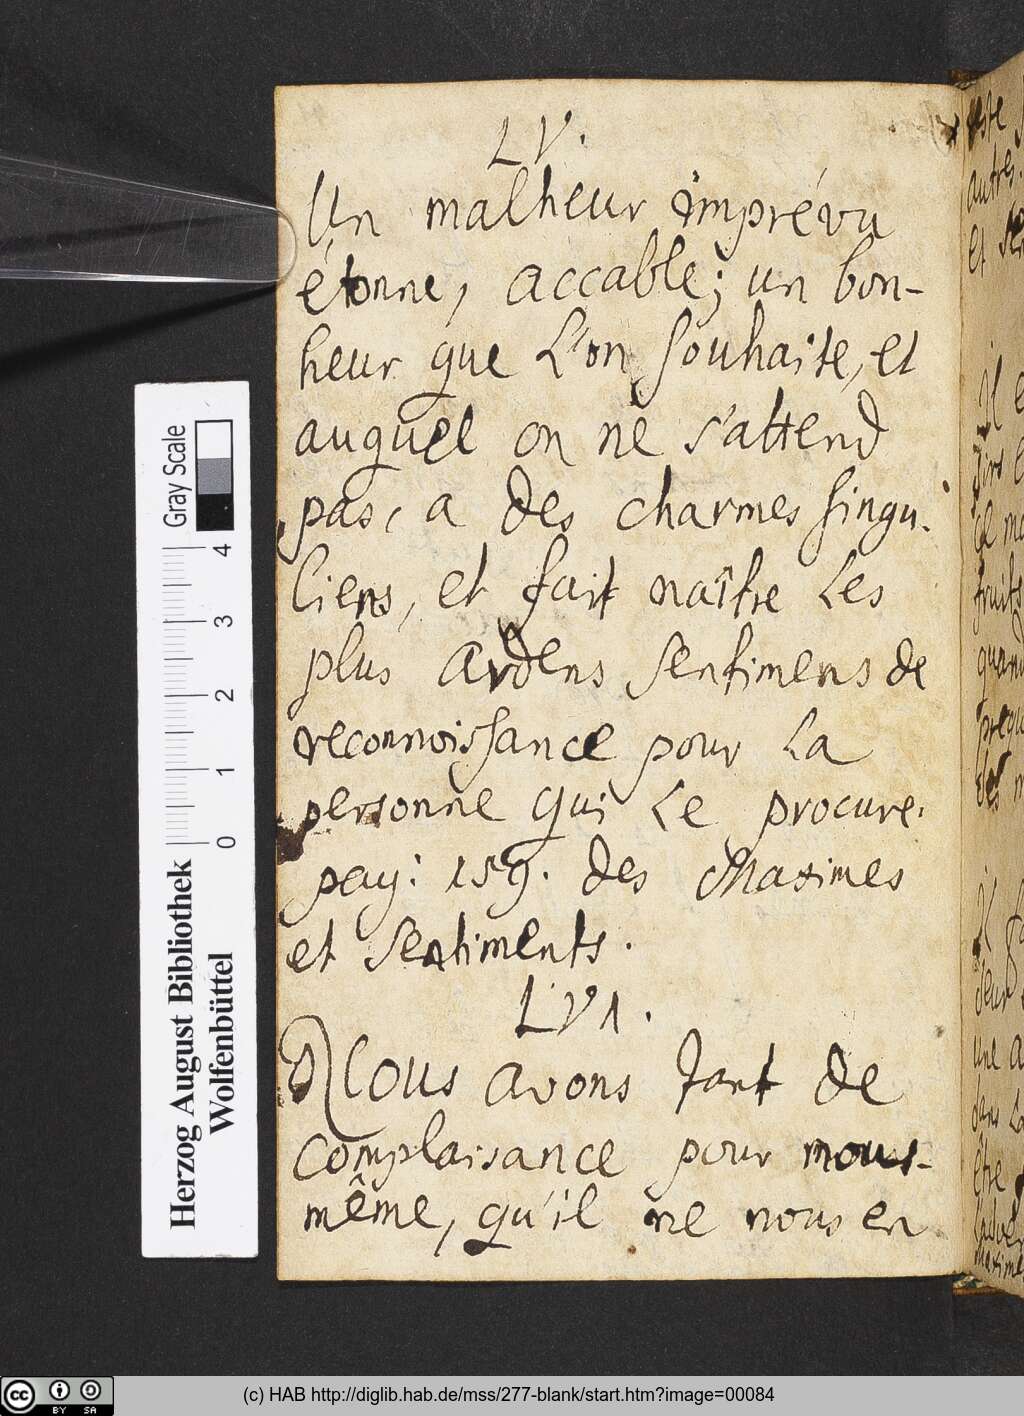 LV.
Un malheur imprévu
étonne, accable; un bon-
heur que L'on souhaite, et
auquel on ne s'attend
pas, a des charmes singu-
liers, et fait naître Les
plus ardens sentimens de
reconnoissance pour La
personne qui Le procure.
pag: 159. des Maximes
et Sentiments.
LVI.
Nous avons tant de
complaisance pour nous-
même, qu'il ne nous en
este
autres.
et
Il
fruits
quand
une
dans La
être
Gray Scale
4
3
2
1
0
Herzog August Bibliothek
Wolfenbüttel
cc BY SA
(c) HAB http://diglib.hab.de/mss/277-blank/start.htm?image=00084